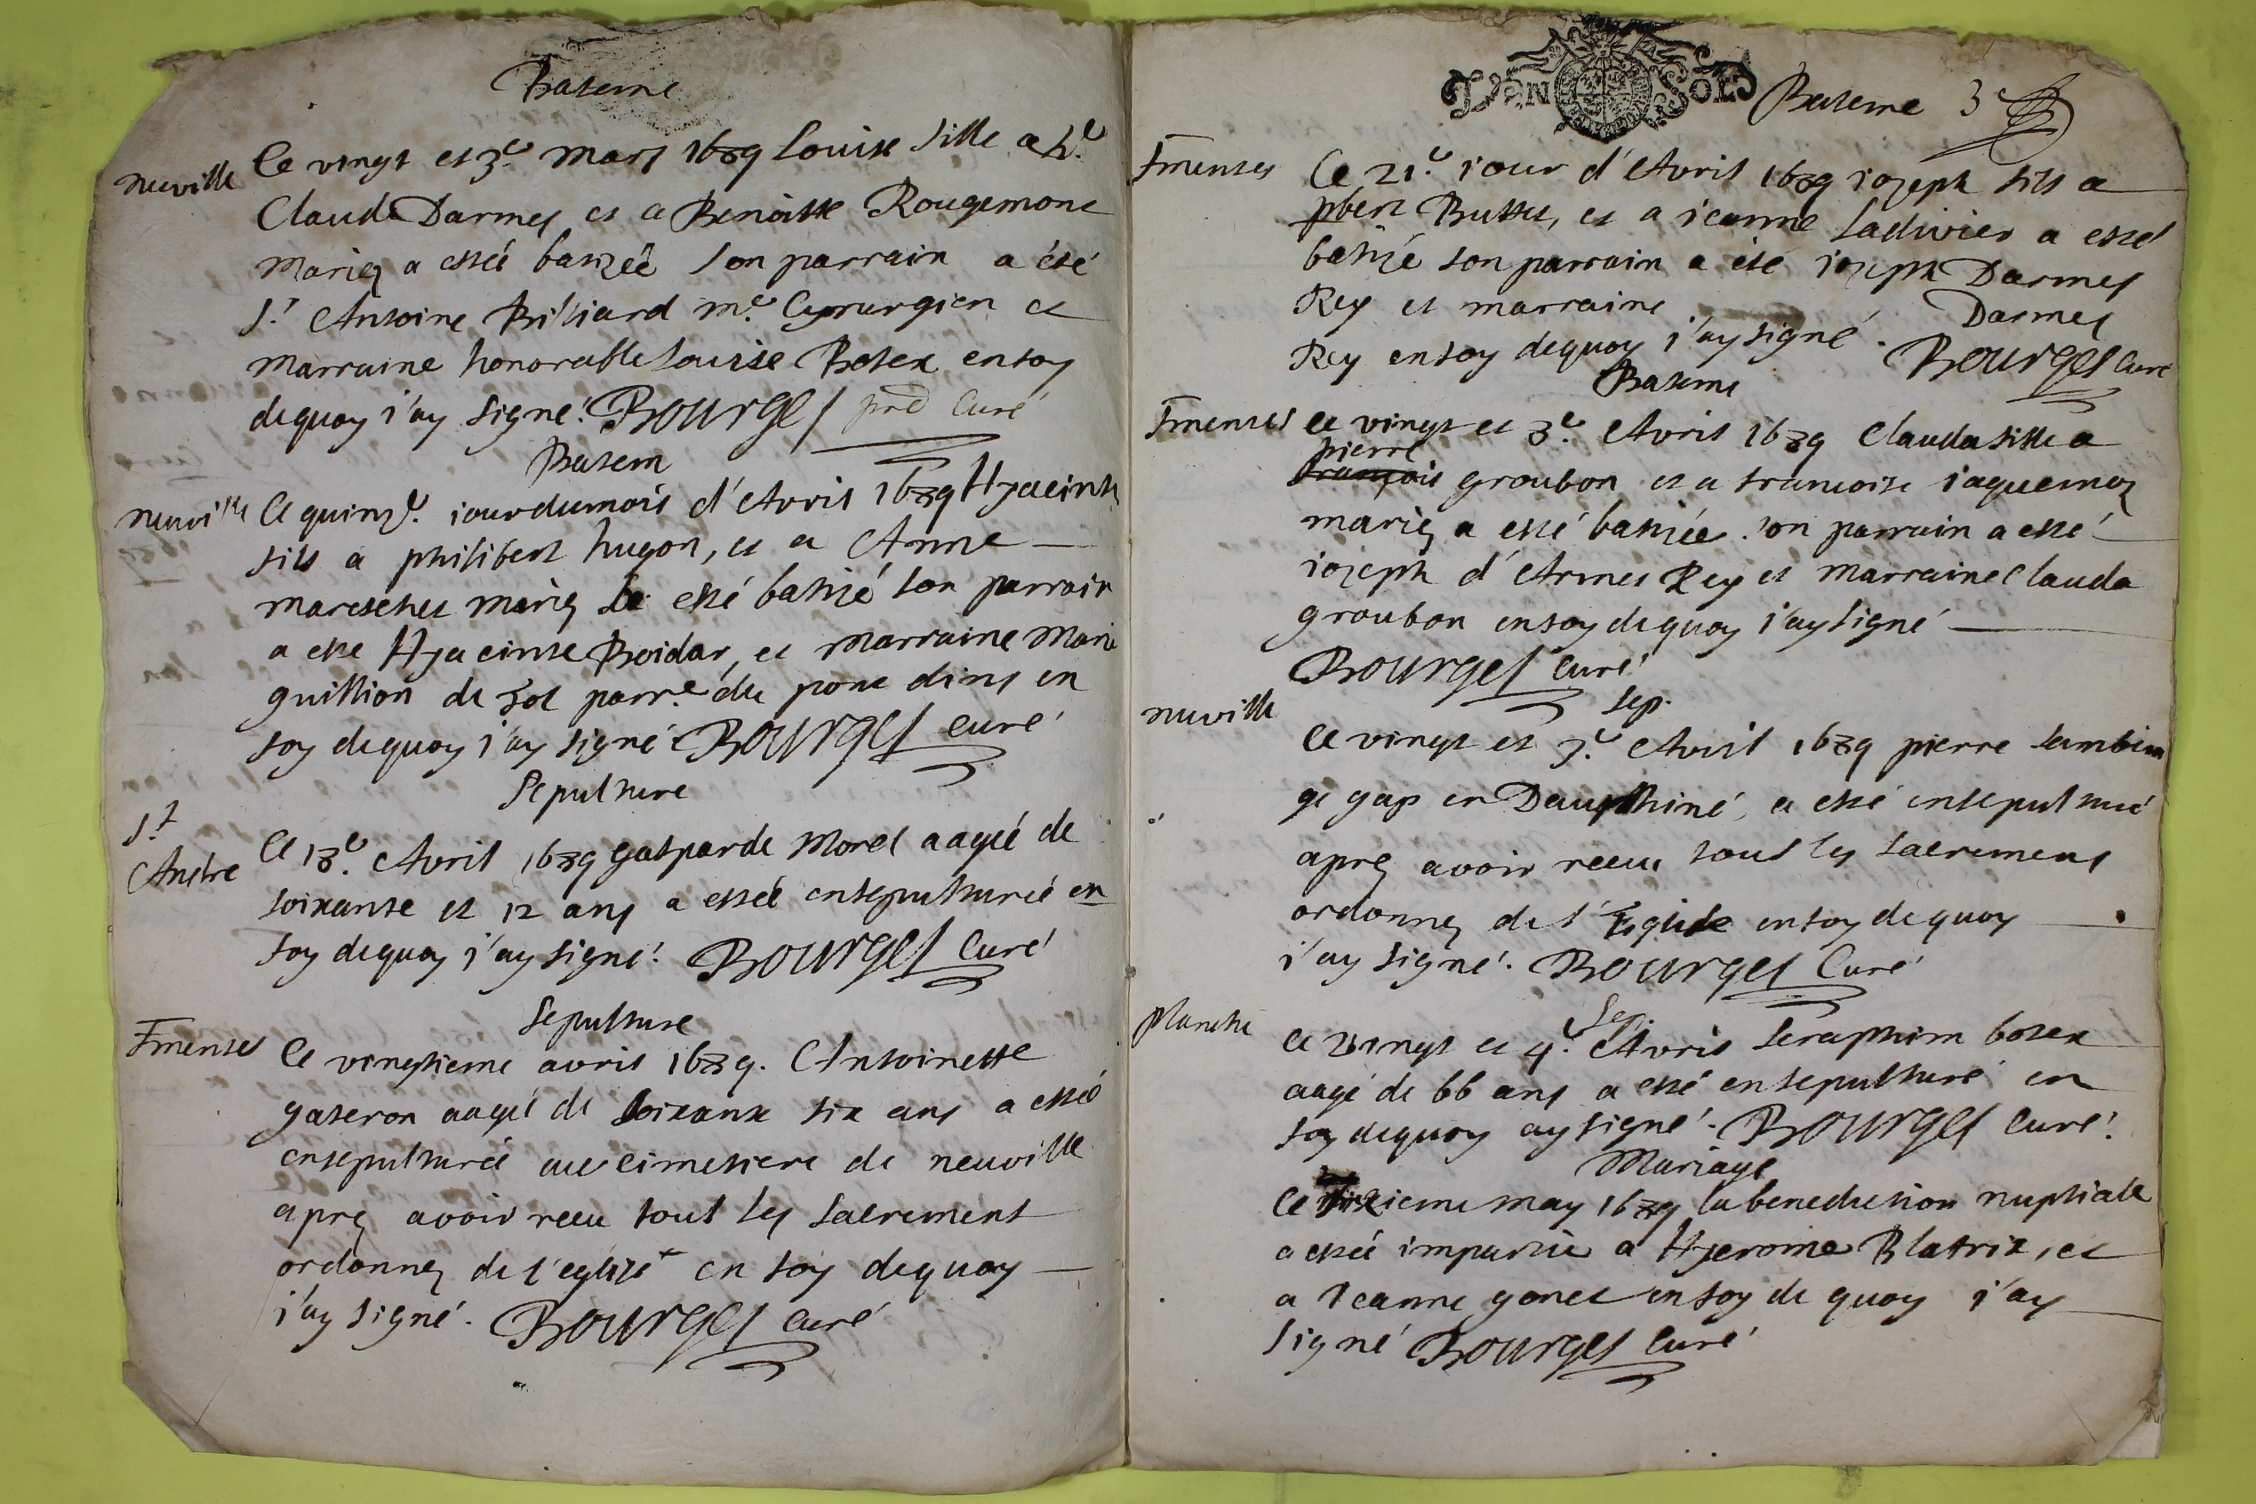 Bateme
neuville
Ce vingt et 3e. mars 1689 Louise fille a he.
Claude Darmes et a Benoitte Rougemont
mariez a estée batizée son parrain a été
St. Antoine Billiard me. Cyrurgien et
marraine honorable Louise Botex en foy
dequoy i'ay signé. BOURGES pre Curé
Batem
neuville
Ce quinze. iour du mois d'Avril 1689 Hyacinte
fils a philibert hugon, et a Anne
mareschet mariez a esté batizé son parrain
a esté Hyacinte Boidar, et marraine Marie
guillion de parre. du pont dins en
foy dequoy i'ay signé BOURGES curé
Sepulture
St.
Andre
Ce 18e. Avril 1689 gasparde Morel aagée de
soixante et 12 ans a estée ensepulturée en
foy dequoy i'ay signé. BOURGES Curé
Sepulture
Fmentes
Ce vingtieme avril 1689. Antoinette
gateron aagée de soixante six ans a estée
ensepulturée au cimetiere de neuville
aprez avoir receu tout les sacrement
ordonnez de l'eglize en foy dequoy
i'ay signé. BOURGES curé
L'VN SOL
Bateme 3e
Fmentes
Ce 21e. iour d'Avril 1689 iozeph fils a
pbert Buttet, et a ieanne Ladivier a esté
batizé son parrain a été iozeph Darmes
Rey et marraine Darmes
Rey en foy dequoy i'ay signé. BOURGES Curé
Bateme
Fmentes
Ce vingt et 3e. Avril 1689 Clauda fille a
pierre
françois groubon et a francoise iaquemoz
mariez a esté batizée son parrain a esté
iozeph d'Armes Rey et marraine Clauda
groubon en foy dequoy i'ay signé
BOURGES Curé
Sep.
neuville
Ce vingt et 3e. Avril 1689 pierre
de gap en Dauphiné a esté ensepulturé
aprez avoir receu tout les sacremens
ordonnez de l'Eglise en foy dequoy
i'ay signé. BOURGES Curé
Sep.
planche
Ce vingt et 4e. Avril seraphim botex
aagé de 66 ans a esté ensepulturé en
foy dequoy ay signé. BOURGES Curé.
Mariage
Ce sixieme may 1689 la benediction nuptiale
a estée impartie a Hjerome Blatrix, et
a Ieanne gonet en foy de quoy i'ay
signé BOURGES curé